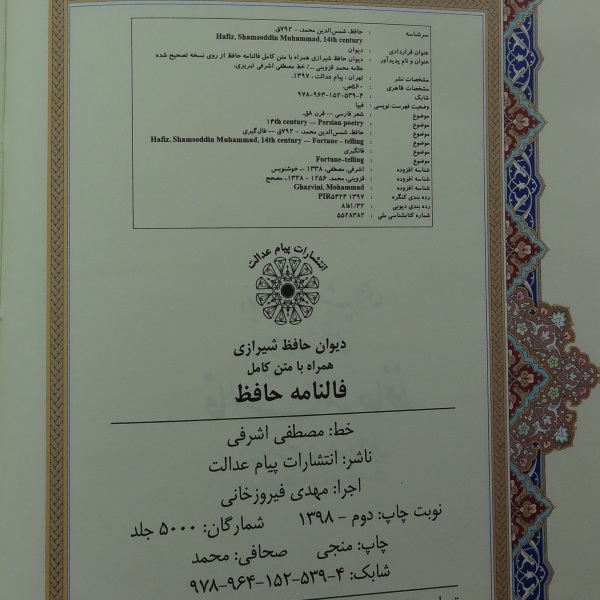 سرشناسه : حافظ، شمس‌الدین محمد، - ۷۹۲ق.
Hafiz, Shamsoddin Muhammad, 14th century
عنوان قراردادی : دیوان
عنوان و نام پدیدآور : دیوان حافظ شیرازی همراه با متن کامل فالنامه حافظ از روی نسخه تصحیح شده
علامه محمد قزوینی .../ خط مصطفی اشرفی تبریزی.
مشخصات نشر : تهران : پیام عدالت ، ۱۳۹۷.
مشخصات ظاهری : ۵۶۰ص.
شابک : ۹۷۸-۹۶۴-۱۵۲-۵۳۹-۴
وضعیت فهرست نویسی : فیپا
موضوع : شعر فارسی -- قرن ۸ق.
موضوع : Persian poetry -- 14th century
موضوع : حافظ، شمس‌الدین محمد، - ۷۹۲ق -- فال‌گیری
موضوع : Hafiz, Shamsoddin Muhammad, 14th century -- Fortune - telling
موضوع : فالگیری
موضوع : Fortune-telling
شناسه افزوده : اشرفی، مصطفی، ۱۳۳۸ -، خوشنویس
شناسه افزوده : قزوینی، محمد، ۱۲۵۶ - ۱۳۲۸.، مصحح
شناسه افزوده : Ghazvini, Mohammad
رده بندی کنگره : PIR۵۴۲۴ ۱۳۹۷
رده بندی دیویی : ۸فا۱/۳۲
شماره کتابشناسی ملی : ۵۵۲۸۳۸۲
انتشارات پیام عدالت
دیوان حافظ شیرازی
همراه با متن کامل
فالنامه حافظ
خط: مصطفی اشرفی
ناشر: انتشارات پیام عدالت
اجرا: مهدی فیروزخانی
نوبت چاپ: دوم - ۱۳۹۸ شمارگان: ۵۰۰۰ جلد
چاپ: منجی صحافی: محمد
شابک: ۴-۵۳۹-۱۵۲-۹۶۴-۹۷۸